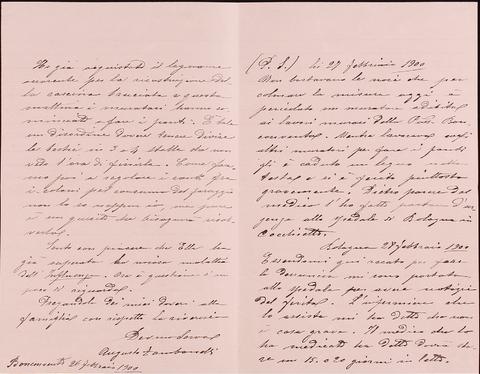 Ho già acquistato il legname
occorrente per la ricostruzione del
la cascina bruciata e questa
mattina i muratori hanno co
minciato a fare i ponti. È tale
un disordine dover tenere divise
le bestie in 3 o 4 stalle da non
vedo l'ora di finirla. Come fare
mo poi a regolare i conti fra
i coloni pel consumo del foraggio
non lo so neppur io, ma pure
è un quesito che bisogna risol
verlo.
Sento con piacere che Ella ha
già superato la noiosa malattia
dell'Influenza. Ora è questione di un
po' di riguardi.
Pregandola dei miei doveri alla
famiglia con rispetto la riverisco
Devmo
Augusto Zamboni
26 febbraio 1900
(P. S.) li 27 febbraio 1900
Non bastavano le noie che per
colmare la misura oggi è
pericolato un muratore addetto
ai lavori murari
Mentre lavorava cogli
altri muratori per fare i ponti
gli è caduto un legno sulla
testa e si è ferito piuttosto
gravemente. Dietro parere del
medico l'ho fatto portare d'ur
genza allo Spedale di Bologna in
Bologna 28 febbraio 1900
Essendomi qui recato per
mi sono portato
allo Spedale per avere notizie
del ferito. L'infermiere che
lo assiste mi ha detto che non
è cosa grave. Il medico che lo
ha medicato ha detto dura
re in 15 o 20 giorni in letto.